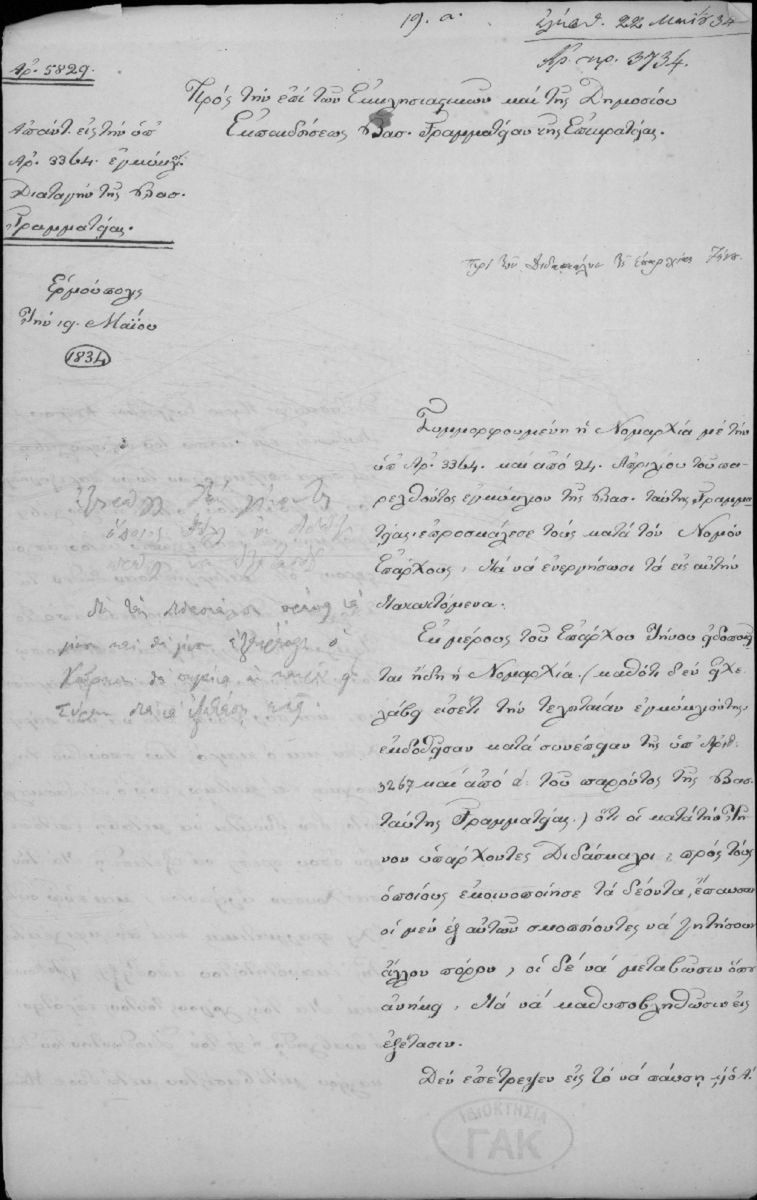 19. α.
ἐλήφθ. 22 Μαΐου 34
Ἀρ. πρ. 3734.
Ἀρ. 5829.
Πρὸς τὴν ἐπὶ τῶν Ἐκκλησιαστικῶν καὶ τῆς Δημοσίου
Ἐκπαιδεύσεως Βασ. Γραμματείαν τῆς Ἐπικρατείας.
Ἀπάντ. εἰς τὴν ὑπ
Ἀρ. 3364. ἐγκύκλ.
Διαταγὴν τῆς Βασ.
Γραμματείας.
Περὶ τῶν Διδασκάλων τῆς ἐπαρχίας Τήνου.
Ἑρμούπολις
Τὴν 19. Μαΐου
1834
Συμμορφουμένη ἡ Νομαρχία μὲ τὴν
ὑπ Ἀρ. 3364. καὶ ἀπὸ 24. Ἀπριλίου τοῦ πα-
ρελθόντος ἐγκύκλιον τῆς Βασ. ταύτης Γραμμα-
τείας, ἐπροσκάλεσε τοὺς κατὰ τὸν Νομὸν
Ἐπάρχους, διὰ νὰ ἐνεργήσωσι τὰ εἰς αὐτὴν
διαταττόμενα.
Ἐκ μέρους τοῦ Ἐπάρχου Τήνου εἰδοποιεῖ-
ται ἤδη ἡ Νομαρχία (καθότι δὲν εἶχε
λάβει εἰσέτι τὴν τελευταίαν ἐγκύκλιόν της
ἐκδοθεῖσαν κατὰ συνέπειαν τῆς ὑπ Ἀριθ.
3267 καὶ ἀπὸ α. τοῦ παρόντος τῆς Βασ.
ταύτης Γραμματείας.) ὅτι οἱ κατὰ τὴν Τῆ-
νον ὑπάρχοντες Διδάσκαλοι, πρὸς τοὺς
ὁποίους ἐκοινοποίησε τὰ δέοντα, ἔπαυσαν
οἱ μὲν ἐξ αὐτῶν σκοπεύοντες νὰ ζητήσουν
ἄλλον πόρον, οἱ δὲ νὰ μεταβῶσιν ὅπου
ἀνήκει, διὰ νὰ καθυποβληθῶσιν εἰς
ἐξέτασιν.
Δὲν ἐπέτρεψεν εἰς τὸ νὰ παύσῃ
ΙΔΙΟΚΤΗΣΙΑ
ΓΑΚ